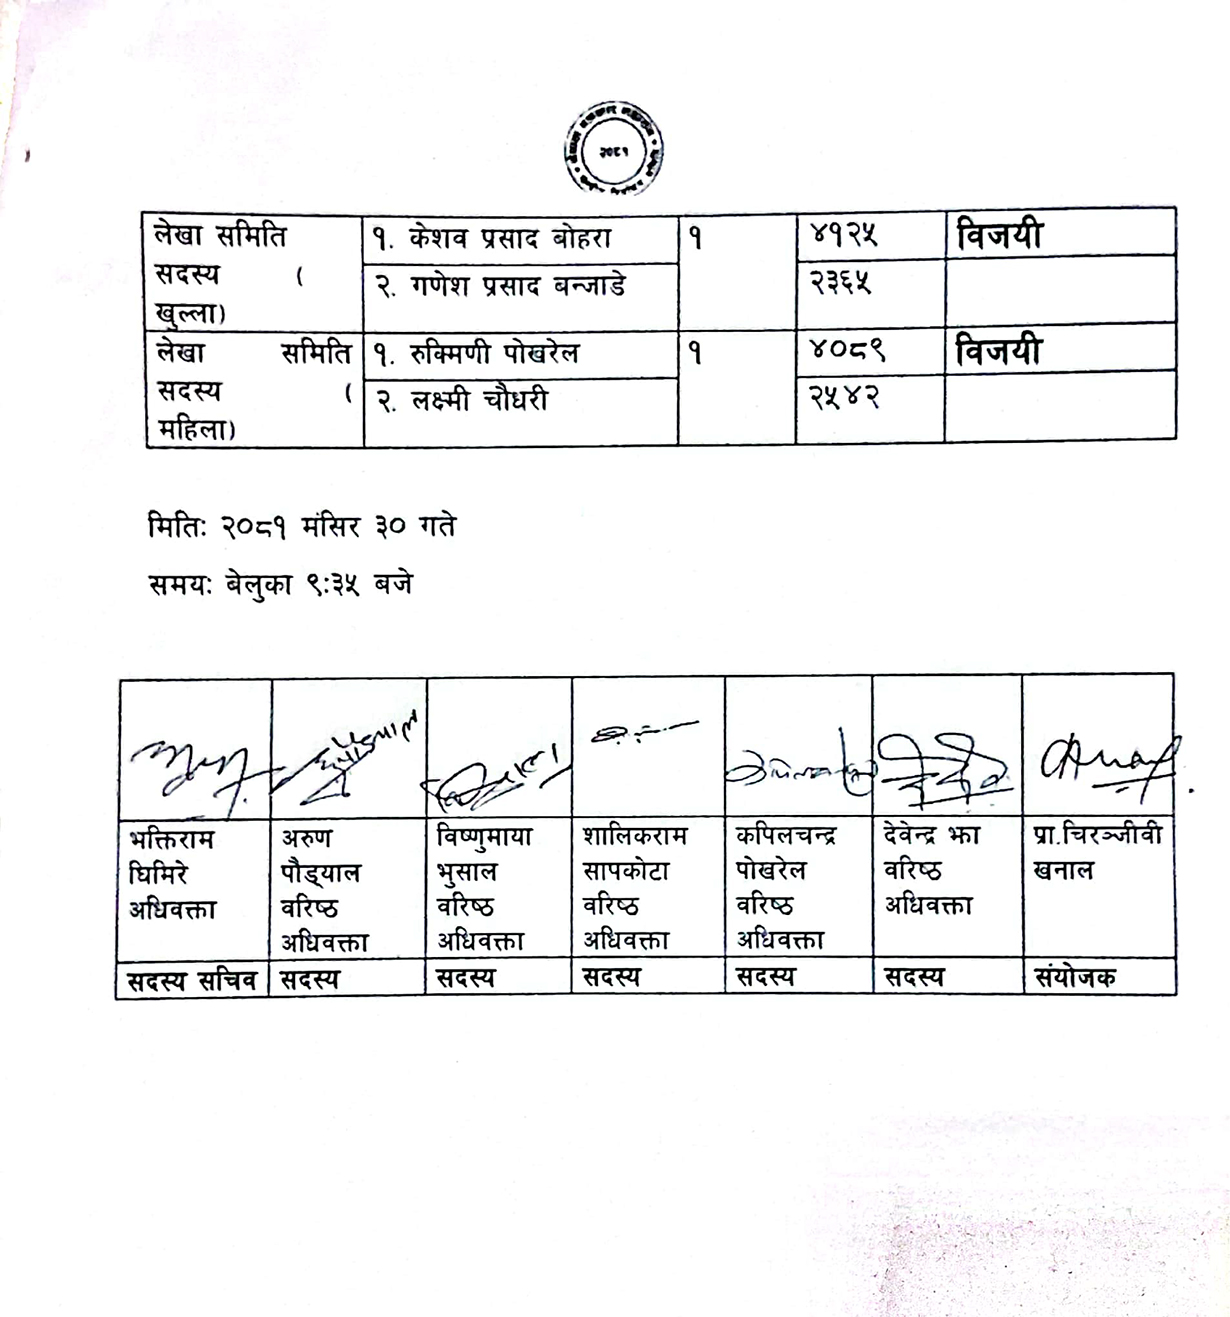 २०८१
लेखा समिति सदस्य ( खुल्ला)
१. केशव प्रसाद बोहरा
१
४१२५
विजयी
२. गणेश प्रसाद बन्जाडे
२३६५
लेखा समिति सदस्य ( महिला)
१. रुक्मिणी पोखरेल
१
४०८९
विजयी
२. लक्ष्मी चौधरी
२५४२
मिति: २०८१ मंसिर ३० गते
समय: बेलुका ९:३५ बजे
भक्तिराम घिमिरे अधिवक्ता
अरुण पौड्याल वरिष्ठ अधिवक्ता
विष्णुमाया भुसाल वरिष्ठ अधिवक्ता
शालिकराम सापकोटा वरिष्ठ अधिवक्ता
कपिलचन्द्र पोखरेल वरिष्ठ अधिवक्ता
देवेन्द्र झा वरिष्ठ अधिवक्ता
प्रा.चिरञ्जीवी खनाल
सदस्य सचिव
सदस्य
सदस्य
सदस्य
सदस्य
सदस्य
संयोजक